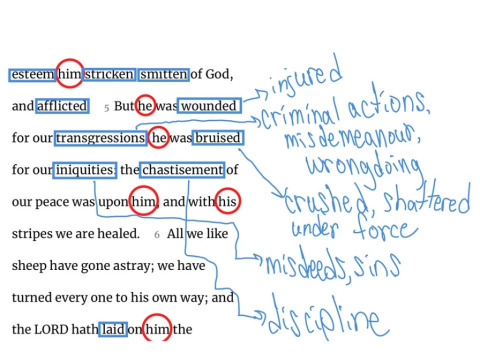 esteem him stricken smitten of God,
and afflicted 5 But he was wounded
for our transgressions he was bruised
for our iniquities: the chastisement of
our peace was upon him; and with his
stripes we are healed. 6 All we like
sheep have gone astray; we have
turned every one to his own way; and
the LORD hath laid on him the
injured
criminal actions,
misdemeanour,
wrongdoing
crushed, shattered
under force
misdeeds, sins
discipline